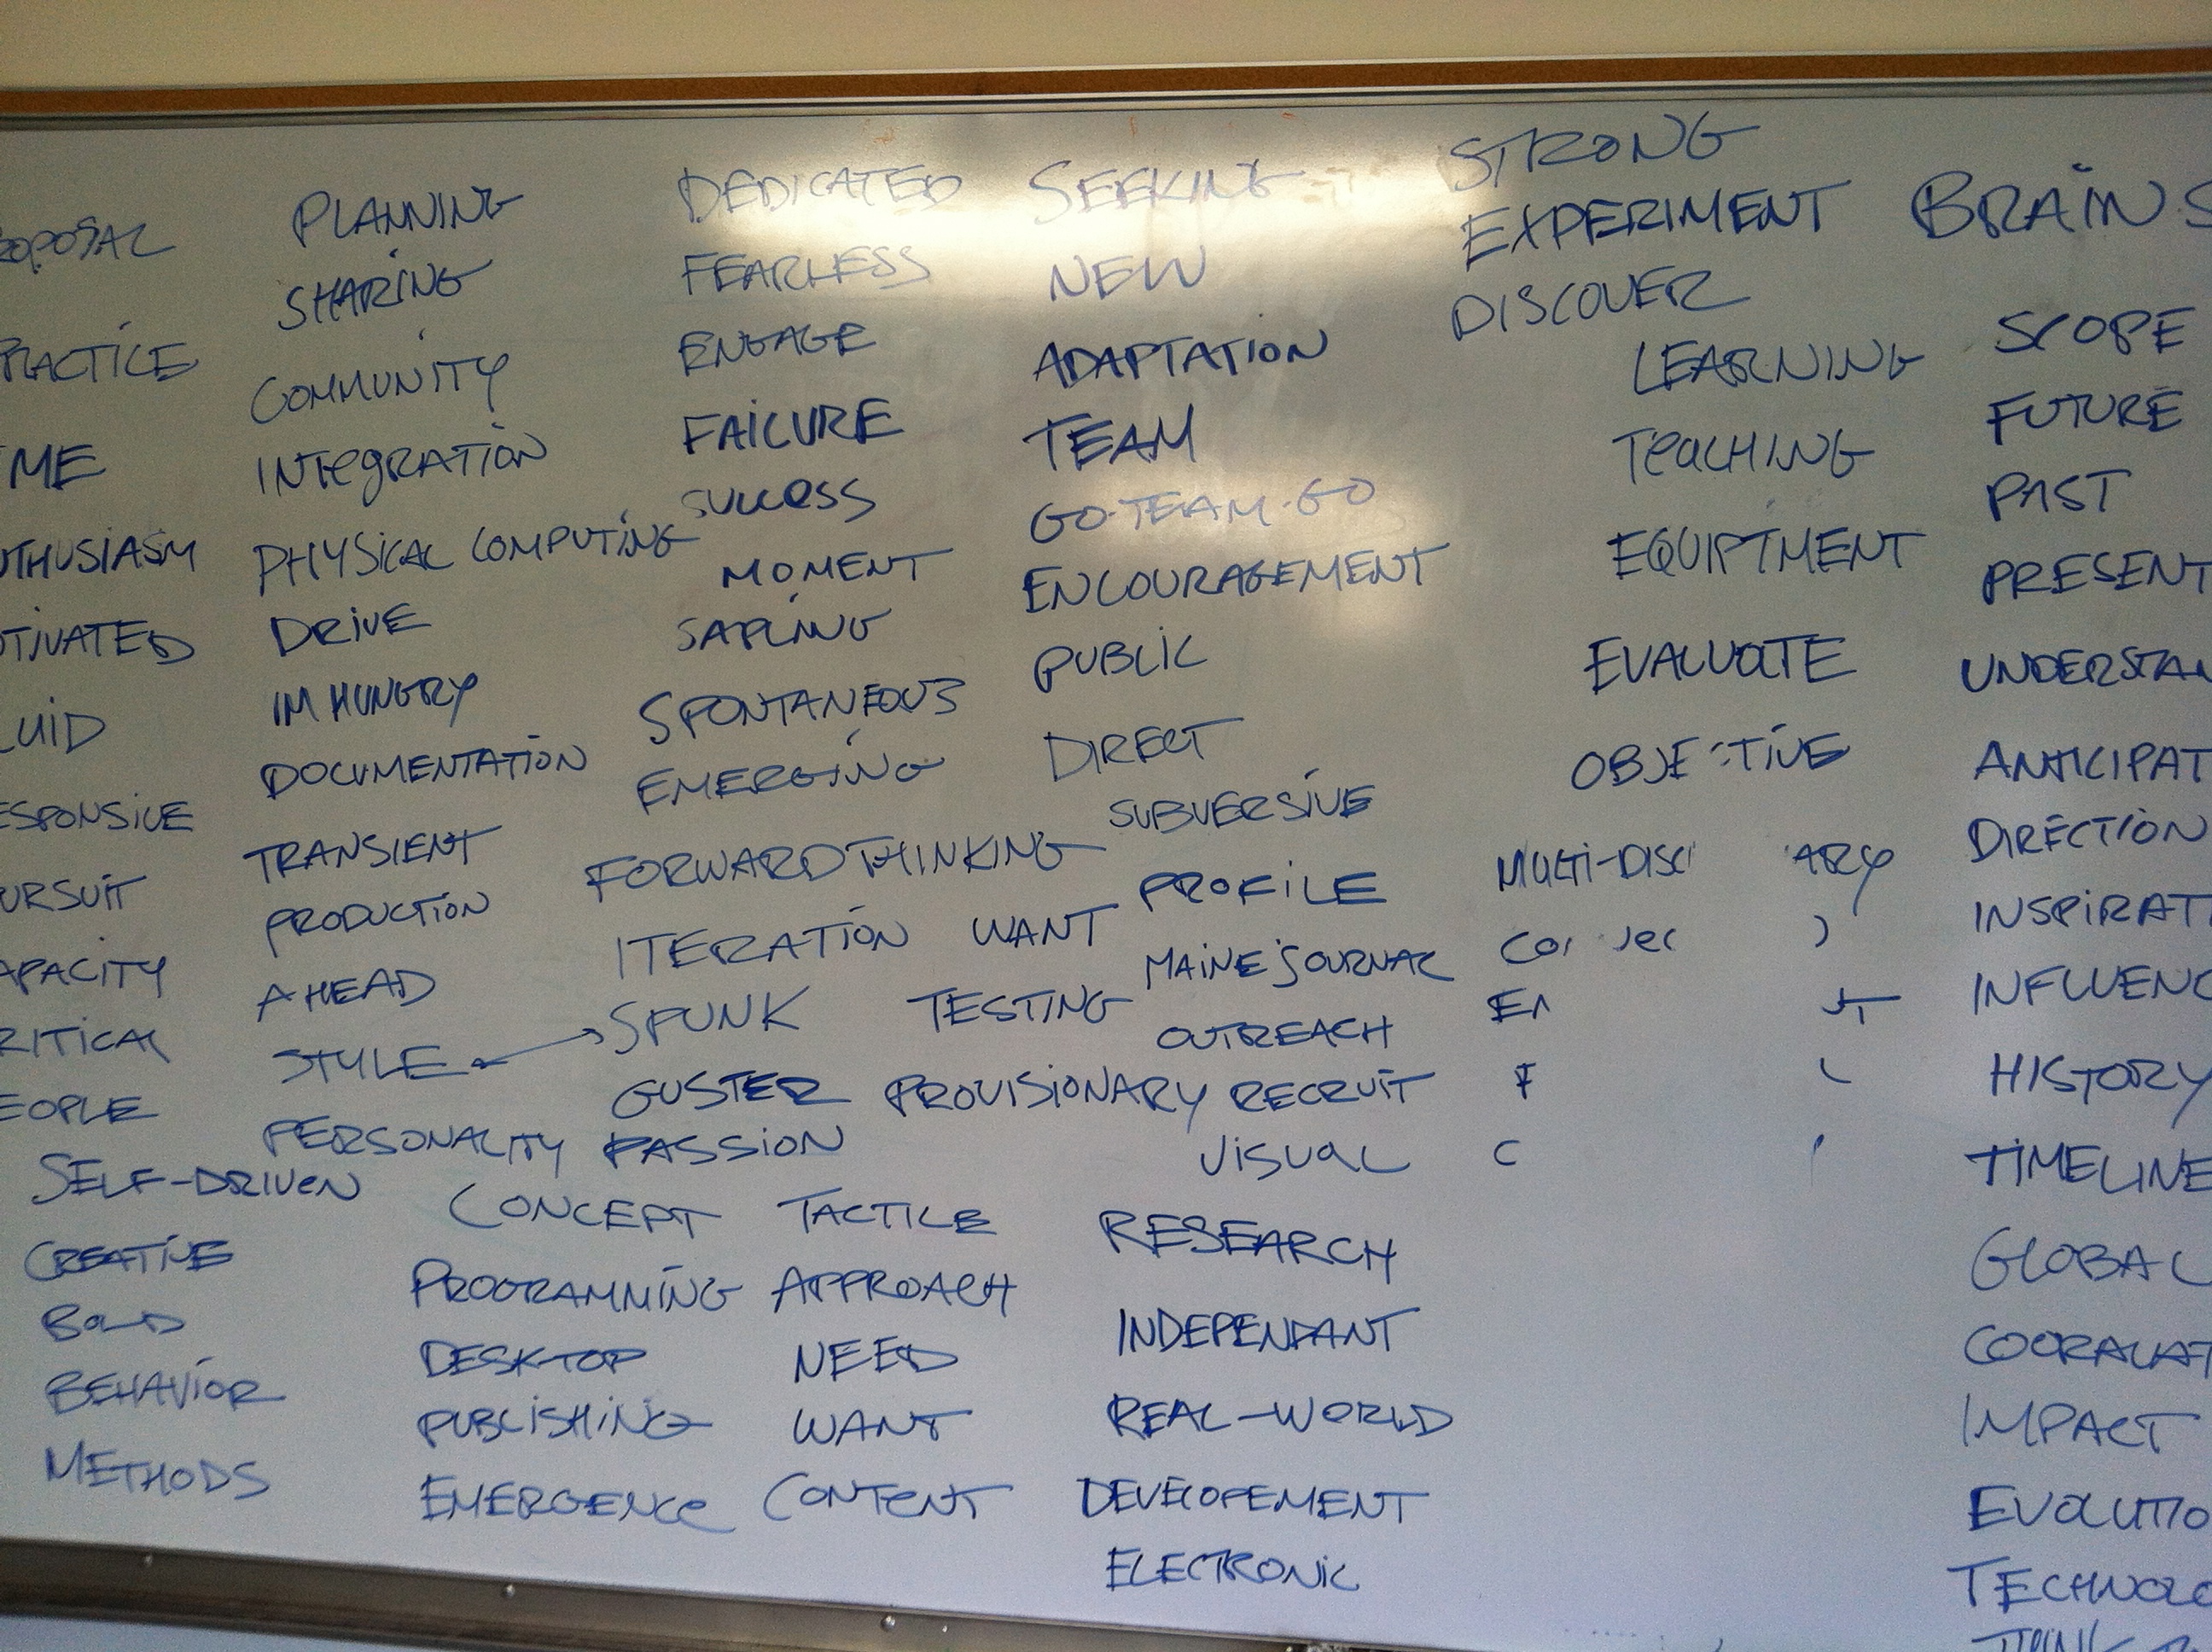 OPOSAL
RACTICE
ME
THUSIASM
TIVATED
UID
ESPONSIVE
URSUIT
APACITY
RITICAL
EOPLE
SELF-DRIVEN
CREATIVE
BOLD
BEHAVIOR
METHODS
PLANNING
SHARING
COMMUNITY
INTEGRATION
PHYSICAL COMPUTING
DRIVE
IM HUNGRY
DOCUMENTATION
TRANSIENT
PRODUCTION
AHEAD
STYLE
PERSONALITY
CONCEPT
PROGRAMMING
DESKTOP
PUBLISHING
EMERGENCE
DEDICATED
FEARLESS
ENGAGE
FAILURE
SUCCESS
MOMENT
SAPLING
SPONTANEOUS
EMERGING
FORWARD THINKING
ITERATION WANT
SPUNK TESTING
GUSTER PROVISIONARY
PASSION
TACTILE
APPROACH
NEED
WANT
CONTENT
SEEKING
NEW
ADAPTATION
TEAM
GO-TEAM-GO
ENCOURAGEMENT
PUBLIC
DIRECT
SUBVERSIVE
PROFILE
MAINE JOURNAL
OUTREACH
RECRUIT
VISUAL
RESEARCH
INDEPENDANT
REAL-WORLD
DEVELOPEMENT
ELECTRONIC
STRONG
EXPERIMENT
DISCOVER
LEARNING
TEACHING
EQUIPTMENT
EVALUATE
OBJE TIVE
MULTI-DISCI ARY
BRAINS
SCOPE
FUTURE
PAST
PRESENT
UNDERSTAN
ANTICIPAT
DIRECTION
INSPIRAT
INFLUENC
HISTORY
TIMELINE
GLOBAL
IMPACT
EVOLUTIO
TECHNOLO